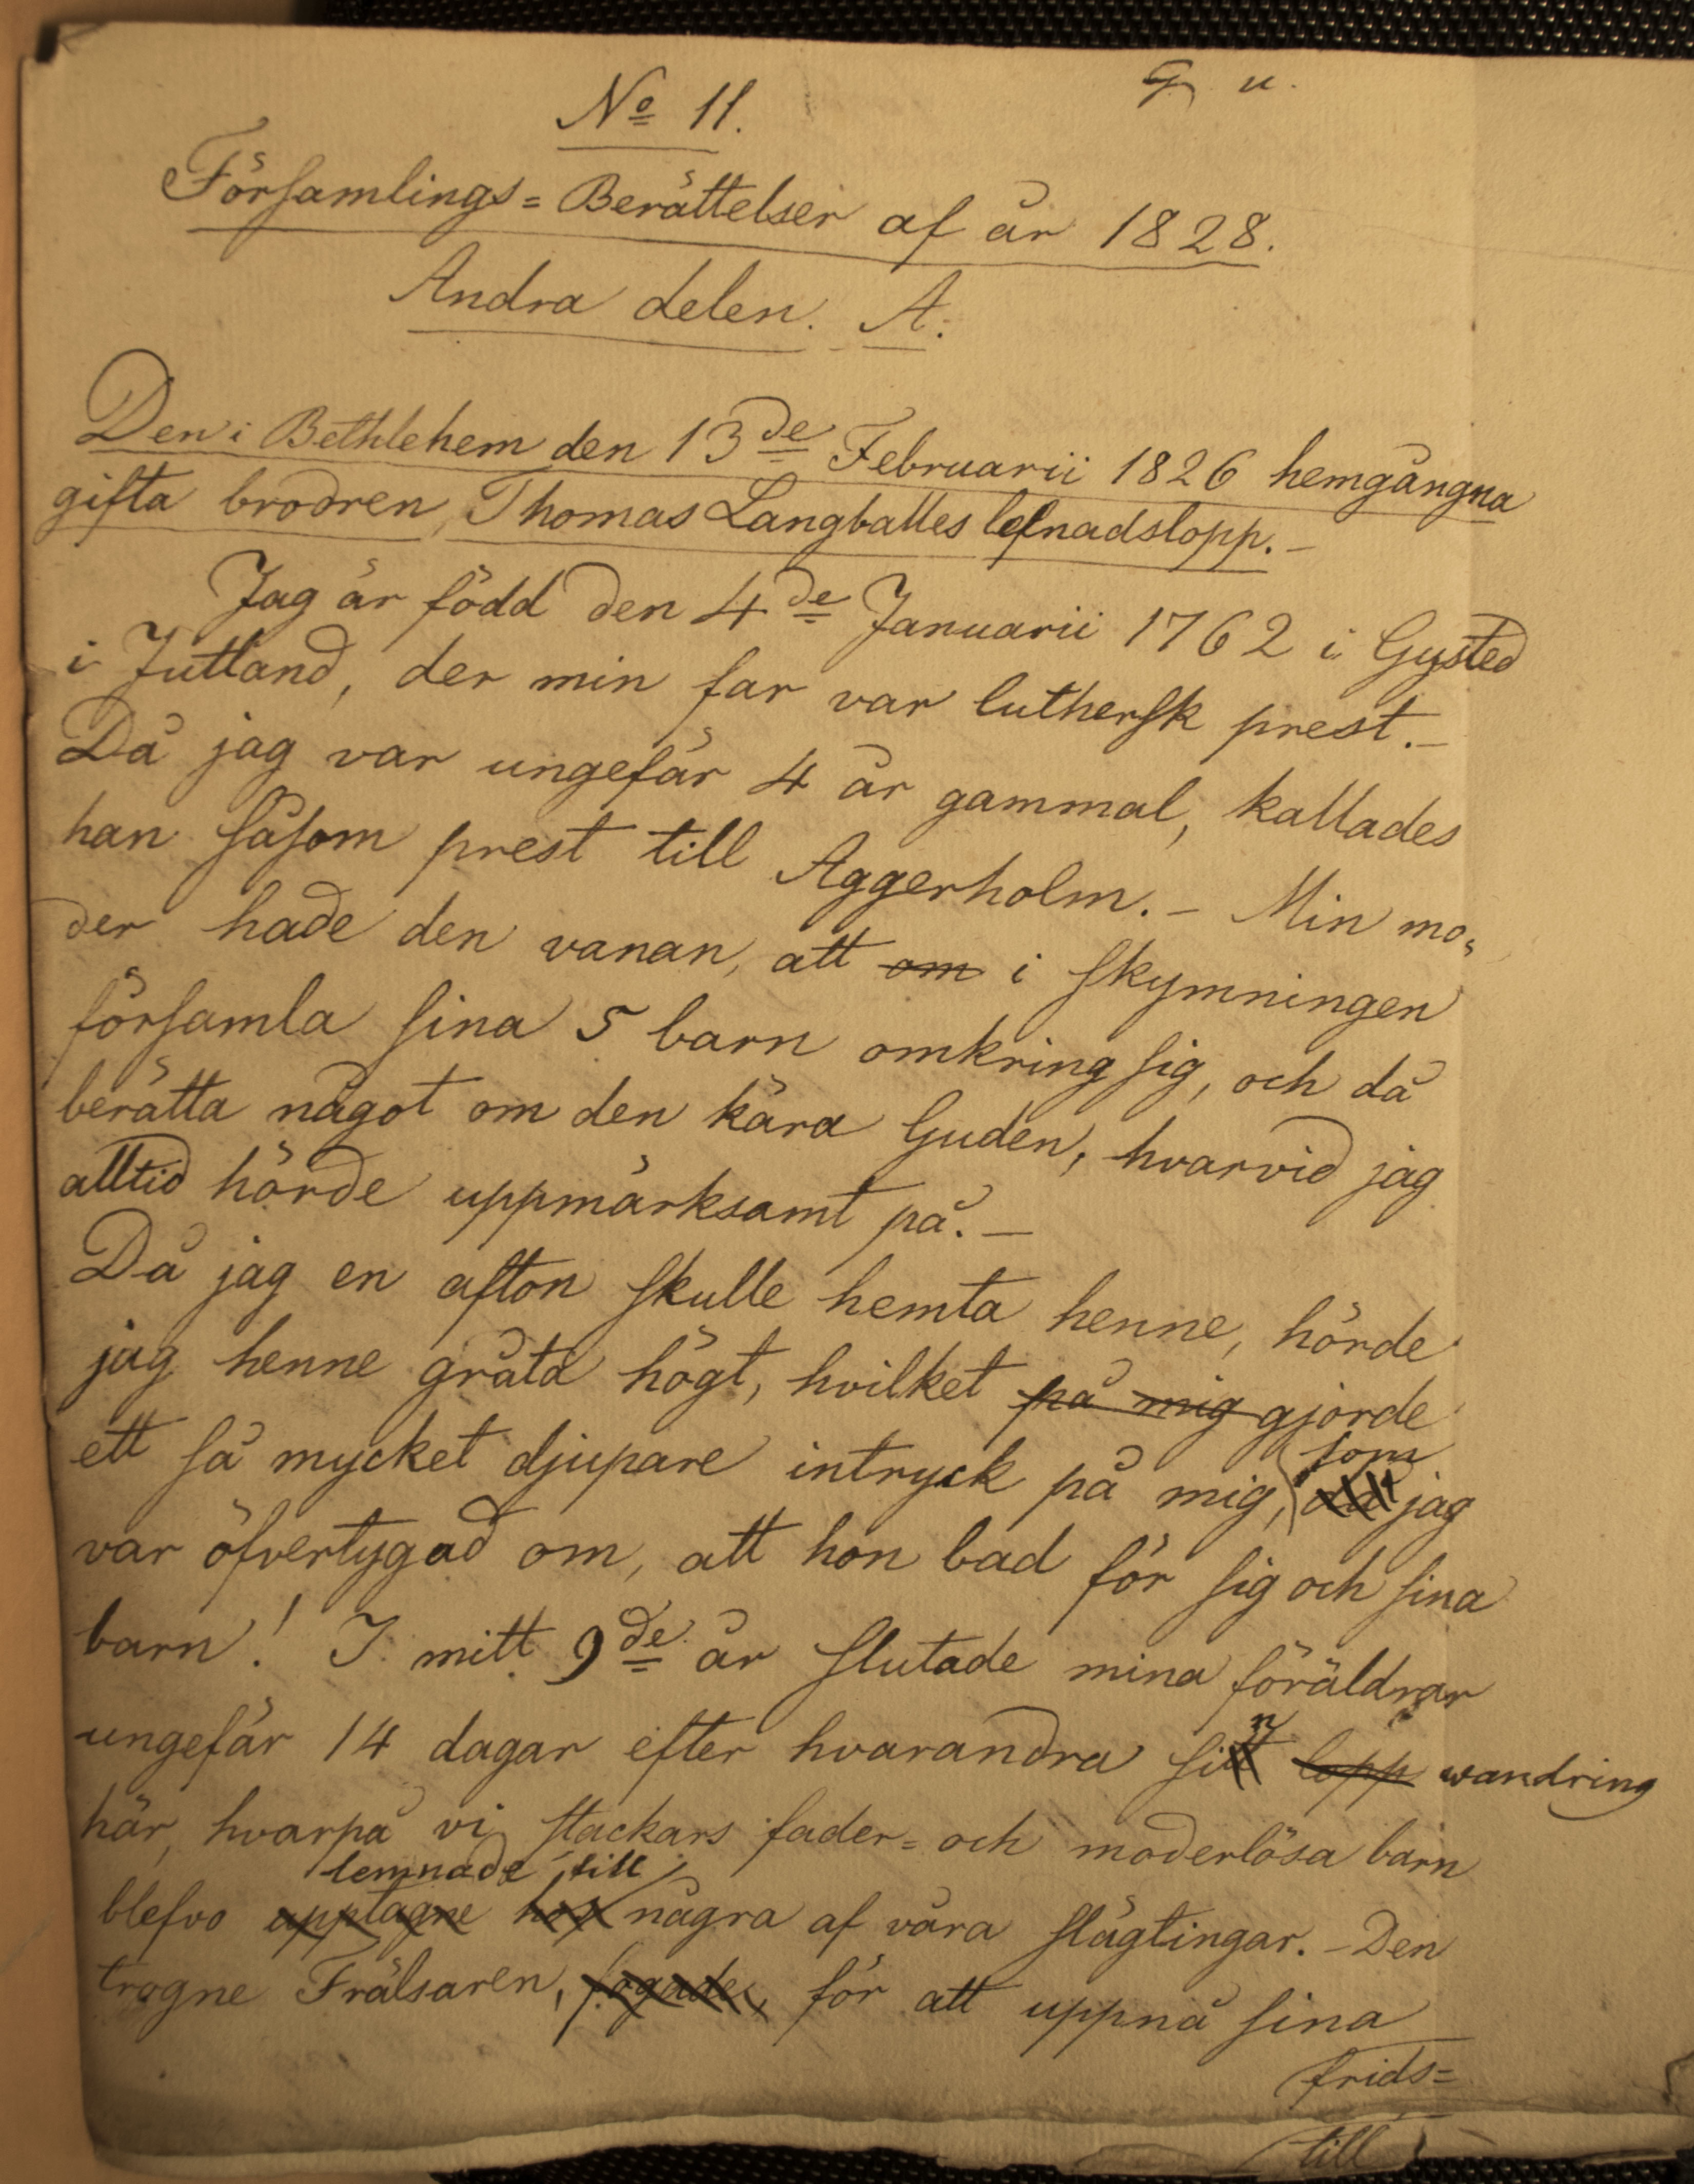 G. u.
No 11.
Församlings=Berättelser af år 1828.
Andra delen. A.
Den i Bethlehem den 13de Februarii 1826 hemgångna
gifta brodren, Thomas Langballes lefnadslopp.–
Jag är född den 4de Januarii 1762 i Gysted
i Jutland, der min far var luthersk prest.–
Då jag var ungefär 4 år gammal, kallades
han såsom prest till Aggerholm.– Min mo=
der hade den vanan, att om i skymningen
församla sina 5 barn omkring sig, och då
berätta något om den kära Guden, hvarvid jag
alltid hörde uppmärksamt på.–
Då jag en afton skulle hemta henne, hörde
jag henne gråta högt, hvilket på mig gjorde
som
ett så mycket djupare intryck på mig, då jag
var öfvertygad om, att hon bad för sig och sina
barn! I mitt 9de år slutade mina föräldrar
n
ungefär 14 dagar efter hvarandra sitt lopp wandring
här, hvarpå vi stackars fader= och moderlösa barn
lemnade till
blefvo upptagne hos några af våra slägtingar.– Den
trogne Frälsaren, fogade, för att uppnå sina
frids=
till